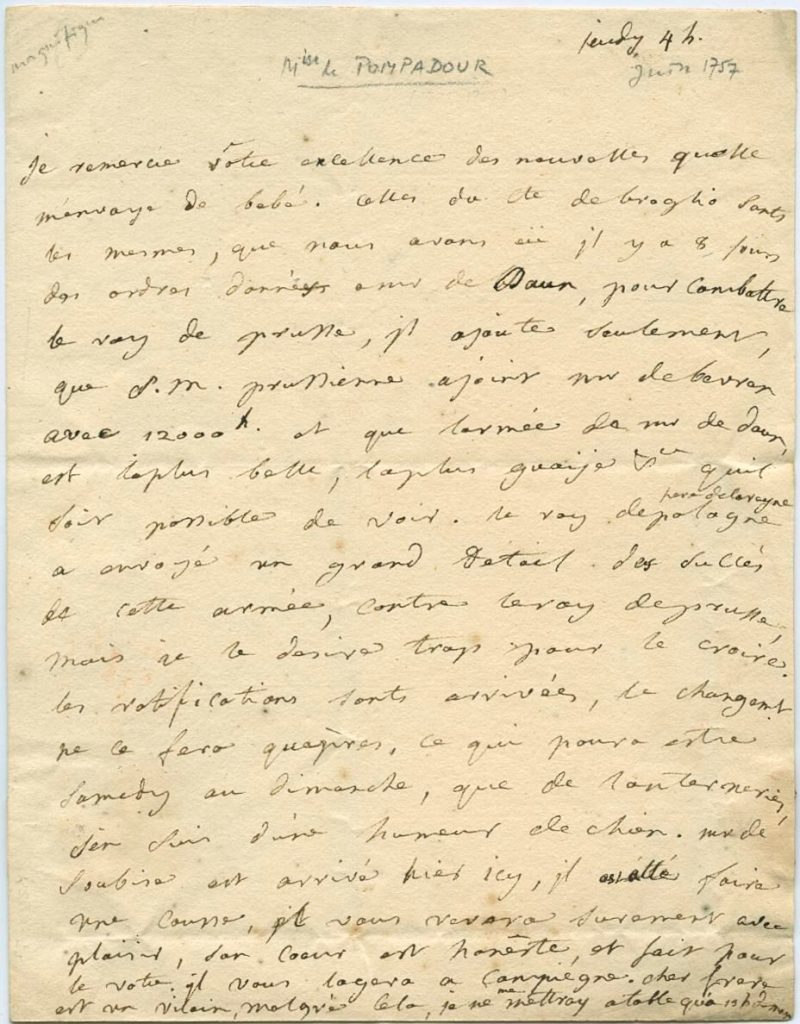 magnifique
jeudy 4 h.
Mise de POMPADOUR
Juin 1757
je remercie vôtre excellence des nouvelles quelle
m'envoye de bebé. celles du cte de broglio sonts
les mesmes, que nous avons eü jl y a 8 jours
des ordres donnés a mr de Daun, pour Combattre
le roy de prusse, jl ajoute seulement,
que S. M. prussienne a joint mr de bevern
avec 12000 h. et que larmée de mr de daun,
est la plus belle, la plus guaije quil
soit possible de voir. le roy de pologne
pere de la reyne
a envoyé un grand Détail des succés
de cette armée, contre le roy de prusse,
mais je le desire trop pour le croire.
les ratifications sonts arrivées, le changemt
ne ce fera quapres, ce qui poura estre
samedy au dimanche, que de lanterneries,
j'en suis d'une humeur de chien. mr de
Soubise est arrivé hier icy, jl est allé faire
une course, jl vous verera surement avec
plaisir, son coeur est honêste, et fait pour
le votre. jl vous logera a Compiegne. cher frere
est un vilain, malgré cela, je ne me mettray a table qu'a